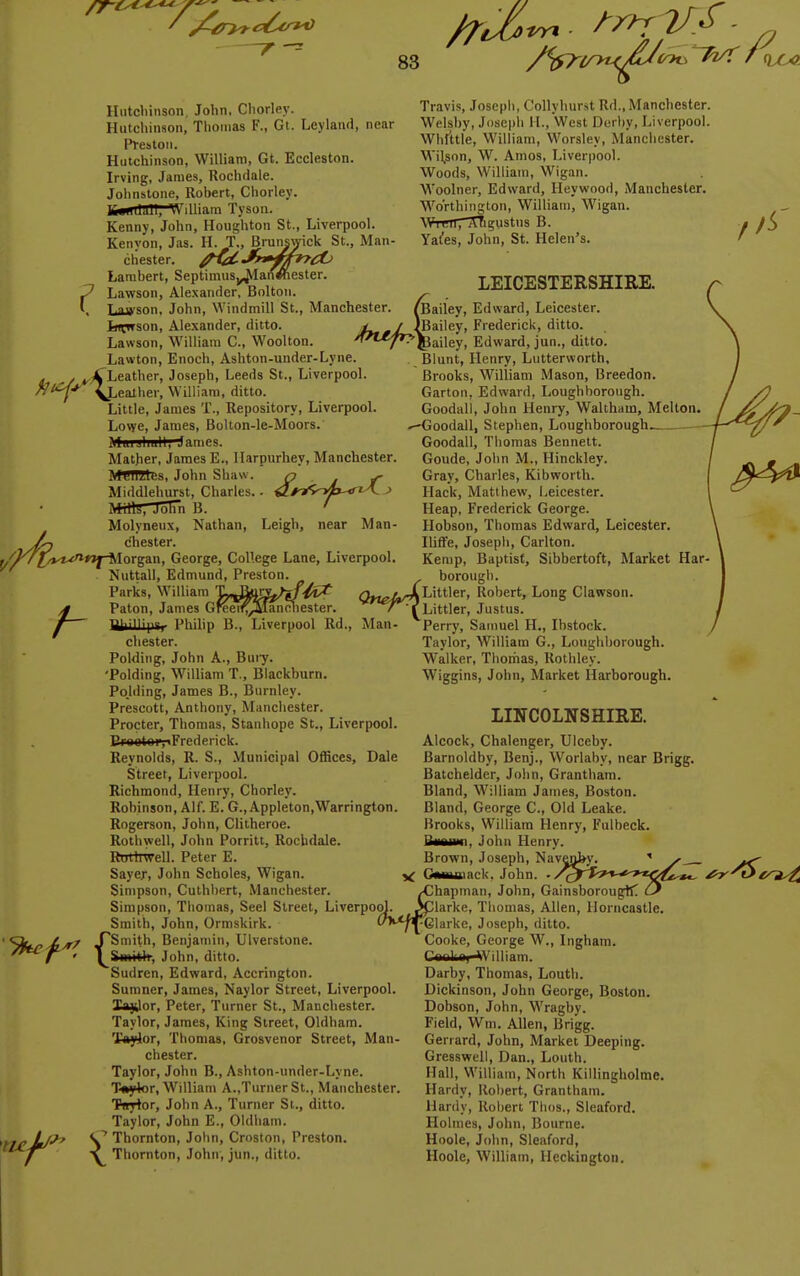 83
Hutchinson, John, Chorley.
Hutchinson, Thomas F., Gt. Leyland, near
Preston.
Hutchinson, William, Gt. Eccleston.
Irving, James, Rochdale.
Johnstone, Robert, Chorley.
William Tyson.
Kenny, John, Houghton St., Liverpool.
Kenyon, Jas. H. T., Brunswick St., Man-
chester.
Lambert, Septimus, Manchester.
Lawson, Alexander, Bolton.
Lawson, John, Windmill St., Manchester.
Lawson, Alexander, ditto.
Lawson, William C., Woolton.
Lawton, Enoch, Ashton-under-Lyne.
Leather, Joseph, Leeds St., Liverpool.
Leather, William, ditto.
Little, James T., Repository, Liverpool.
Lowe, James, Bolton-le-Moors.
Marshall, James.
Mather, James E., Harpurhey, Manchester.
Menzies, John Shaw.
Middlehurst, Charles.
Mills, John B.
Molyneux, Nathan, Leigh, near Man-
chester.
Morgan, George, College Lane, Liverpool.
Nuttall, Edmund, Preston.
Parks, William
Paton, James Green, Manchester.
Phillips, Philip B., Liverpool Rd., Man-
chester.
Polding, John A., Bury.
Polding, William T., Blackburn.
Polding, James B., Burnley.
Prescott, Anthony, Manchester.
Procter, Thomas, Stanhope St., Liverpool.
Procter, Frederick.
Reynolds, R. S., Municipal Offices, Dale
Street, Liverpool.
Richmond, Henry, Chorley.
Robinson, Alf. E. G., Appleton, Warrington.
Rogerson, John, Clitheroe.
Rothwell, John Porritt, Rochdale.
Rothwell. Peter E.
Sayer, John Scholes, Wigan.
Simpson, Cuthbert, Manchester.
Simpson, Thomas, Seel Street, Liverpool.
Smith, John, Ormskirk.
Smith, Benjamin, Ulverstone.
Smith, John, ditto.
Sudren, Edward, Accrington.
Sumner, James, Naylor Street, Liverpool.
Taylor, Peter, Turner St., Manchester.
Taylor, James, King Street, Oldham.
Taylor, Thomas, Grosvenor Street, Man-
chester.
Taylor, John B., Ashton-under-Lyne.
Taylor, William A., Turner St., Manchester.
Taylor, John A., Turner St., ditto.
Taylor, John E., Oldham.
Thornton, John, Croston, Preston.
Thornton, John, jun., ditto.
Travis, Joseph, Collyhurst Rd., Manchester.
Welsby, Joseph H., West Derby, Liverpool.
Whittle, William, Worsley, Manchester.
Wilson, W. Amos, Liverpool.
Woods, William, Wigan.
Woolner, Edward, Heywood, Manchester.
Worthington, William, Wigan.
Wren, Augustus B.
Yates, John, St. Helen's.
LEICESTERSHIRE.
Bailey, Edward, Leicester.
Bailey, Frederick, ditto.
Bailey, Edward, jun., ditto.
Blunt, Henry, Lutterworth,
Brooks, William Mason, Breedon.
Garton, Edward, Loughborough.
Goodall, John Henry, Waltham, Melton.
Goodall, Stephen, Loughborough.
Goodall, Thomas Bennett.
Goude, John M., Hinckley.
Gray, Charles, Kibworth.
Hack, Matthew, Leicester.
Heap, Frederick George.
Hobson, Thomas Edward, Leicester.
Iliffe, Joseph, Carlton.
Kemp, Baptist, Sibbertoft, Market Har-
borough.
Littler, Robert, Long Clawson.
Littler, Justus.
Perry, Samuel H., Ibstock.
Taylor, William G., Loughborough.
Walker, Thomas, Rothley.
Wiggins, John, Market Harborough.
LINCOLNSHIRE.
Alcock, Chalenger, Ulceby.
Barnoldby, Benj., Worlaby, near Brigg.
Batchelder, John, Grantham.
Bland, William James, Boston.
Bland, George C., Old Leake.
Brooks, William Henry, Fulbeck.
John Henry.
Brown, Joseph, Navenby.
Cammack, John.
Chapman, John, Gainsborough.
Clarke, Thomas, Allen, Horncastle.
Clarke, Joseph, ditto.
Cooke, George W., Ingham.
Cooke, William.
Darby, Thomas, Louth.
Dickinson, John George, Boston.
Dobson, John, Wragby.
Field, Wm. Allen, Brigg.
Gerrard, John, Market Deeping.
Gresswell, Dan., Louth.
Hall, William, North Killingholme.
Hardy, Robert, Grantham.
Hardy, Robert Thos., Sleaford.
Holmes, John, Bourne.
Hoole, John, Sleaford,
Hoole, William, Heckington.